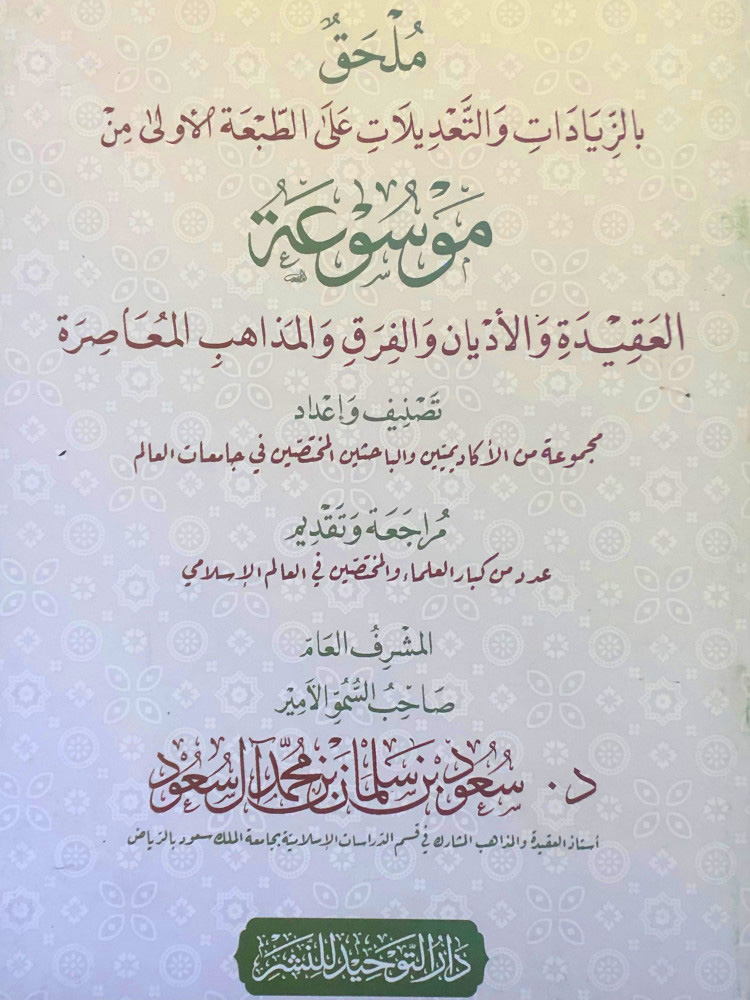 مُلْحَقٌ
بِالزِّيَادَاتِ وَالتَّعْدِيلَاتِ عَلَى الطَّبْعَة الأولى مِنْ
مَوْسُوْعَةُ
العَقِيْدَةِ وَالأدْيان وَالفِرَقِ وَالمَذاهبِ المُعَاصِرَة
تَصْنِيف وَإعْداد
مجموعة من الأكاديميّين والباحثين المختصّين في جامعات العالم
مُرَاجَعَة وَتَقْدِيم
عدد من كبار العلماء والمختصّين في العالم الإسلامي
المشْرِفُ العَامّ
صَاحِبُ السُّمُوِّ الأَمِيْر
د. سُعُود بْن سَلمَان بْن مُحمَّد آل سُعُود
أستاذ العقيدة والمذاهب المشارك في قسم الدّراسات الإسلاميّة بجامعة الملك سعود بالرّياض
دَارُ التَّوْحِيْدِ للنَّشْر